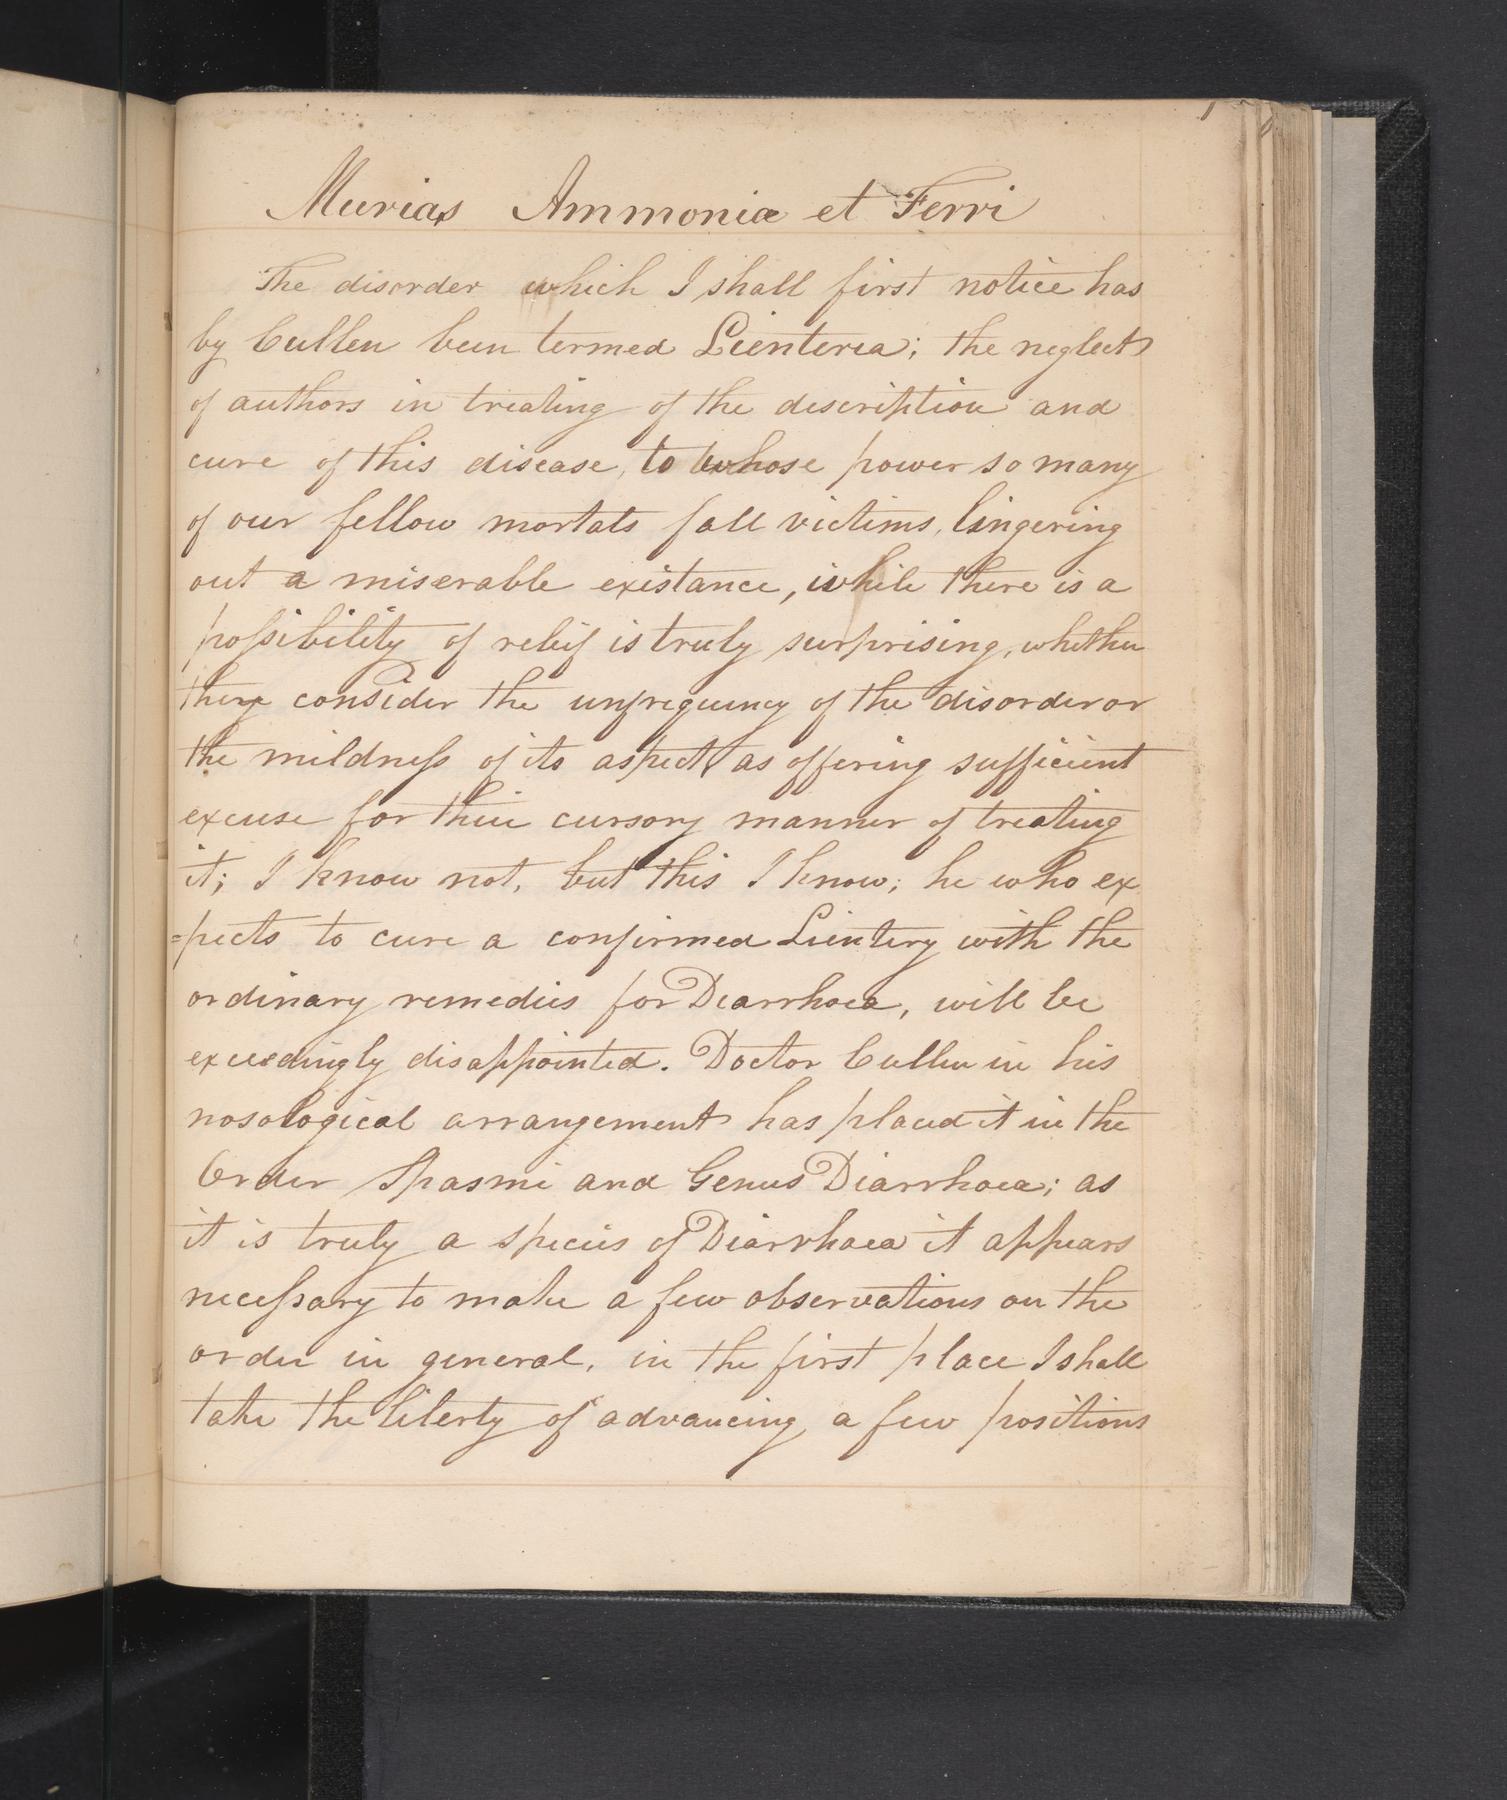 1
Murias Ammoniæ et Ferri
The disorder which I shall first notice has
by Cullen been termed Lienteria; the neglect
of authors in treating of the description and
cure of this disease, to whose power so many
of our fellow mortals fall victims, lingering
out a miserable existance, while there is a
possibility of releif is truly surprising, whether
they consider the unfrequency of the disorder or
the mildness of its aspect as offering sufficient
excuse for their cursory manner of treating
it; I know not, but this I know; he who ex
=pects to cure a confirmed Lientery with the
ordinary remedies for Diarrhoea, will be
exceedingly disappointed. Doctor Cullen in his
nosological arrangement has placed it in the
Order Spasmi and Genus Diarrhoea; as
it is truly a species of Diarrhoea it appears
necessary to make a few observations on the
order in general, in the first place I shall
take the liberty of advancing a few positions